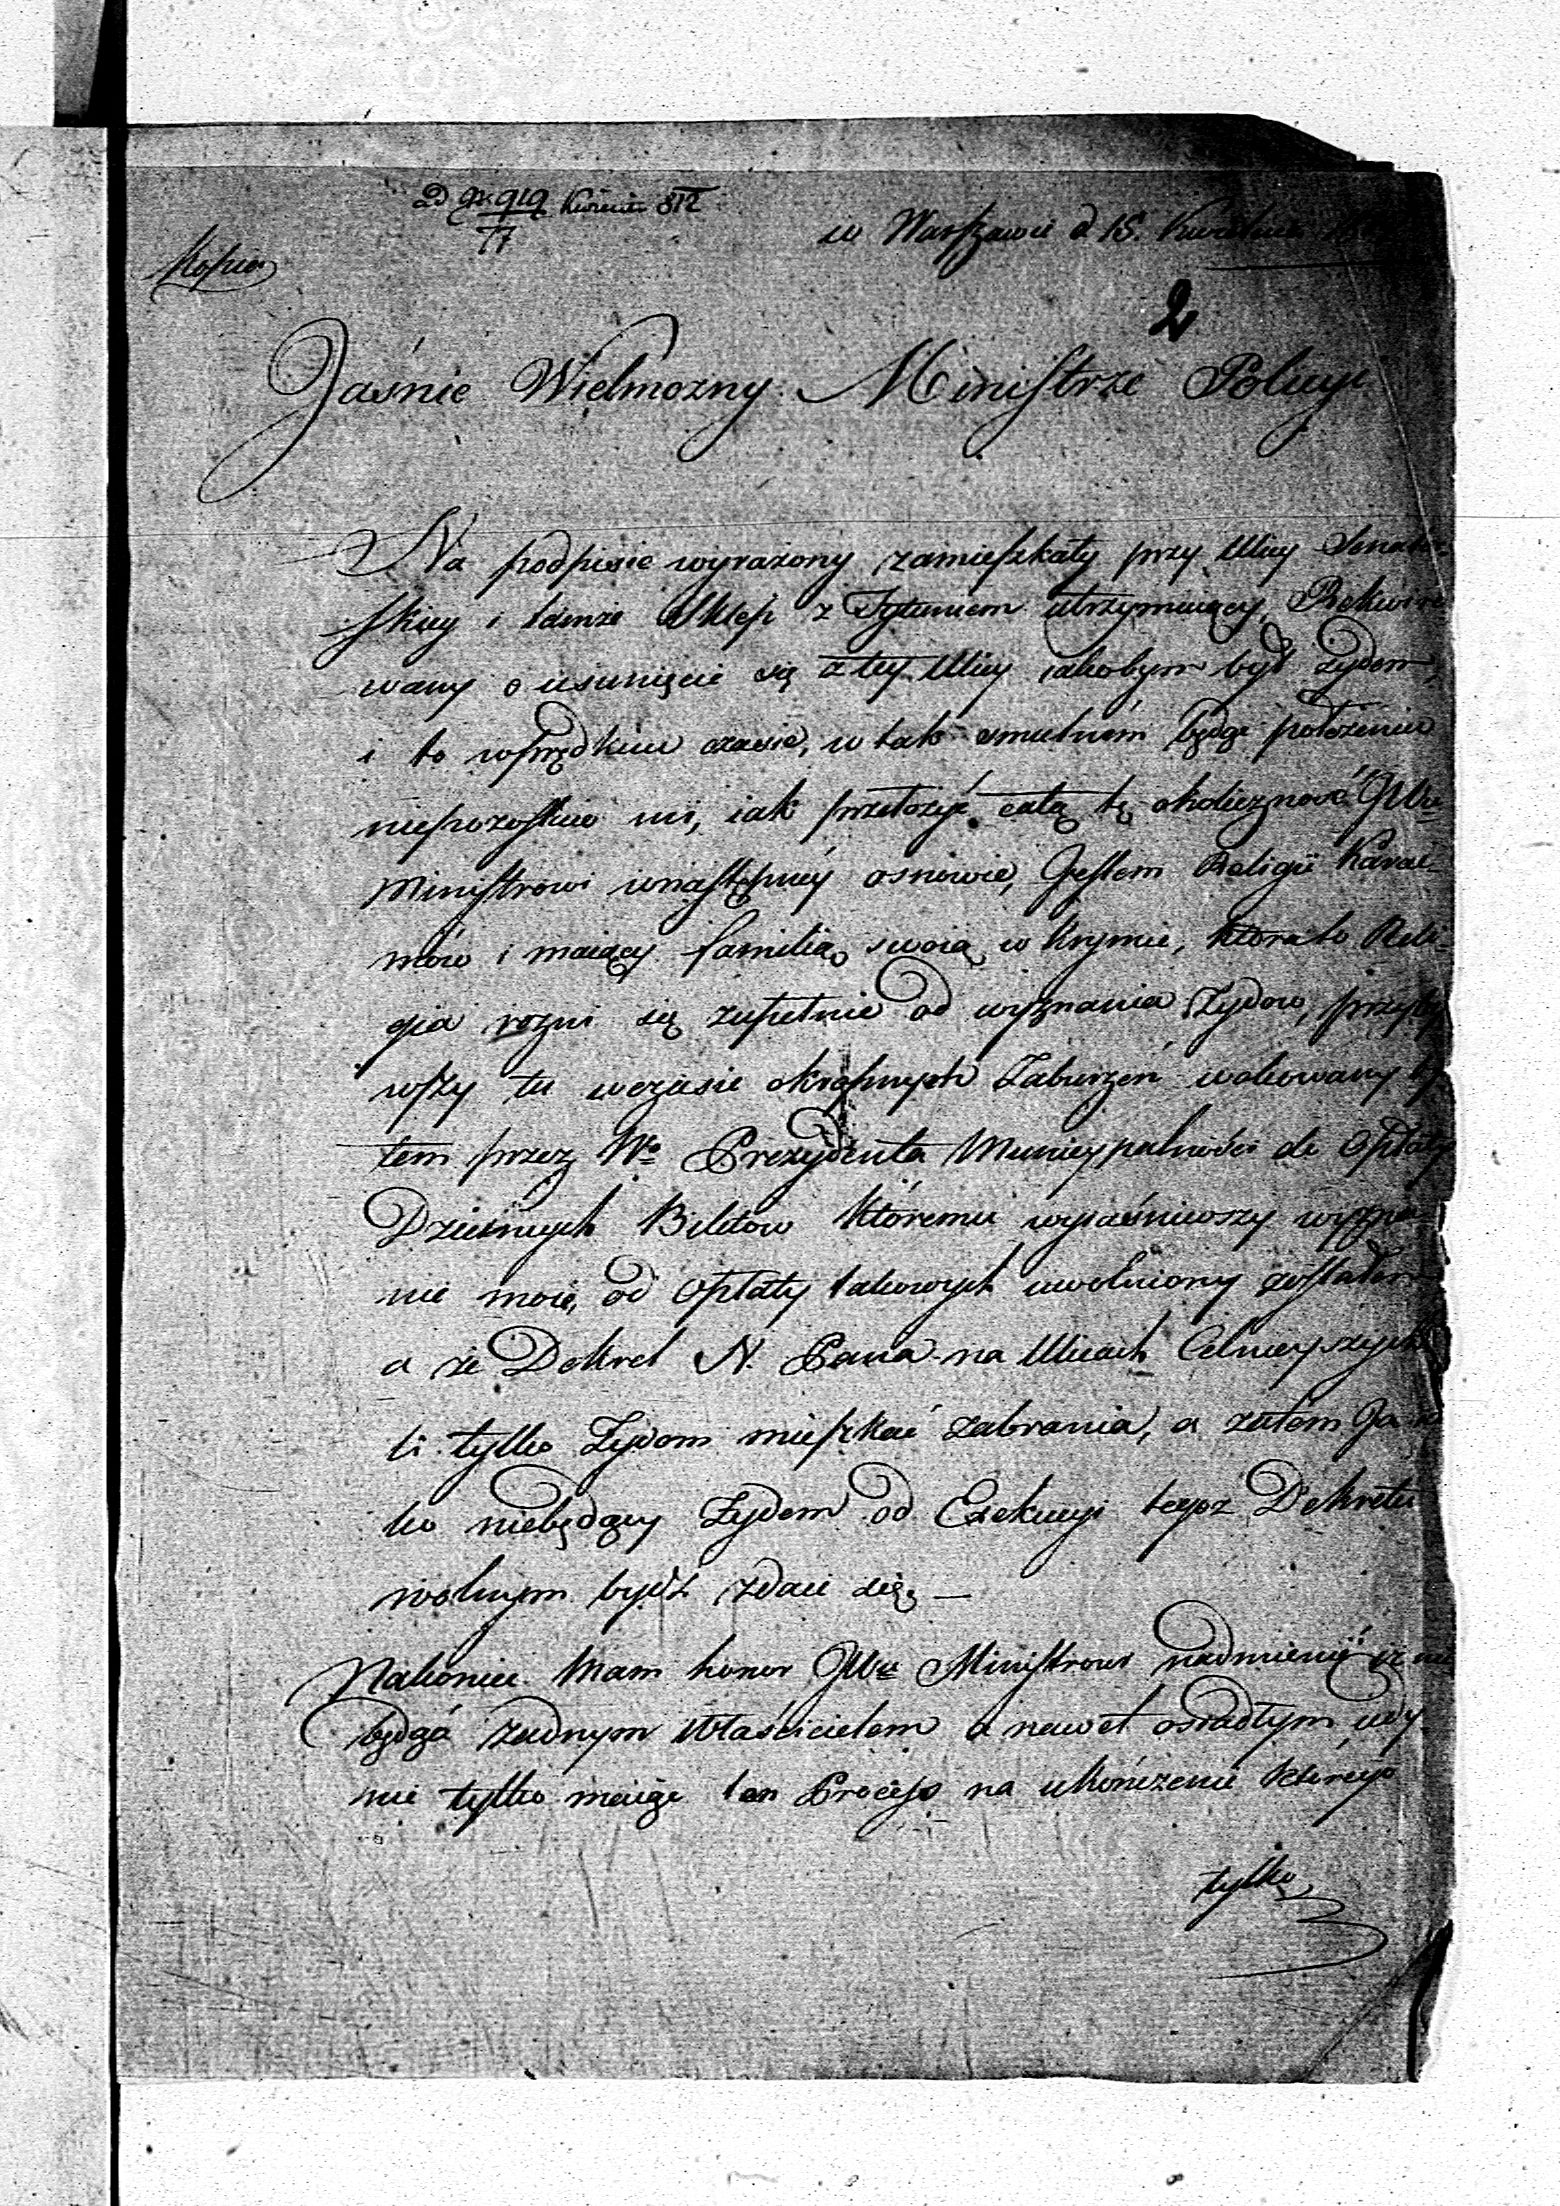 w Warszawie d 15. Kwietnia
2
Jaśnie Wielmozny Ministrze Policyi
Na podpisie wyrażony zamieszkały przy Ulicy Senator
skiey i tamże Sklep z Tytuniem utrzymuiący, Rekwiro
wany o usunięcie się z tey Ulicy iakobym był Żydem,
i to wprędkim czasie, w tak smutném będąc położeniu
niepozostaie mi, iak przełożyć całą tę okoliczność JWu
Ministrowi wnastępnéy osnowie, Jestem Religii Karai-
mów i maiący familią swoią w Krymie, która to Reli-
gia rożni się zupełnie od wyznania Żydow, przyby
wszy tu wczasie okropnych Zaburzeń wokowany by
łem przez Wo Prezydenta Municypalności do Opłaty
Dziennych Biletow Któremu wyiaśniwszy wyzna
nie moie, od Opłaty takowych uwolniony zostałem
a że Dekret N. Pana na Ulicach Celnieyszych
ti tylko Żydom mieszkać zabrania, a zatém Ja ia
ko niebędący Żydem od Exekucyi tegoż Dekretu
wolnym bydź zdaie się, —
Nakoniec Mam honor JWu Ministrowi nadmienić iż nie
będąc żadnym Właścicielem a nawet osiadłym iedy
nie tylko maiąc ten Process na ukończenie którego
tylko